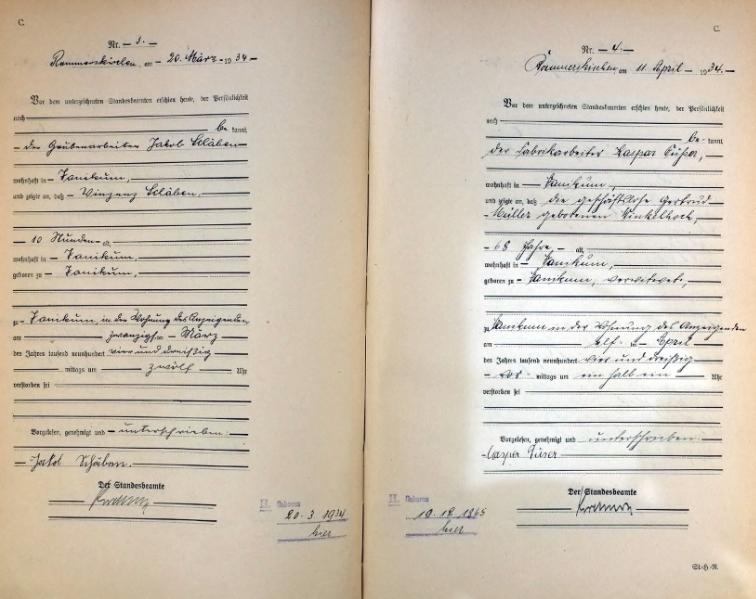 C.
Nr. - 3. -
Rommerskirchen, am - 20. März - 1934 -
Vor dem unterzeichneten Standesbeamten erschien heute, der Persönlichkeit
nach
be kannt,
- der Grubenarbeiter Jakob Schäben -
wohnhaft in - Vanikum,
und zeigte an, daß - Vinzenz Schäben,
- 10 Stunden -
wohnhaft in - Vanikum,
geboren zu - Vanikum,
zu - Vanikum, in der Wohnung des Anzeigenden
am zwanzigsten - März
des Jahres tausend neunhundert vier und dreißig
mittags um zwölf Uhr
verstorben sei
Vorgelesen, genehmigt und - unterschrieben -
- Jakob Schäben.
Der Standesbeamte
H. Geboren
20. 3. 1934
hier
C.
Nr. - 4. -
Rommerskirchen am 11. April - 1934. -
Vor dem unterzeichneten Standesbeamten erschien heute, der Persönlichkeit
nach
be- kannt,
der Fabrikarbeiter Kaspar
wohnhaft in - Vanikum,
und zeigte an, daß die geschäftslose Gertrud
Müller geborenen Winkelhoch,
- 68 Jahre - alt,
wohnhaft in - Vanikum,
geboren zu - Vanikum, verwitwet,
zu Vanikum in der Wohnung des Anzeigenden
am elf - April
des Jahres tausend neunhundert vier und dreißig
- vor - mittags um ein halb ein Uhr
verstorben sei
Vorgelesen, genehmigt und unterschrieben
Caspar
Der Standesbeamte
H. Geboren
19. 12. 1865
hier
St-H-R.